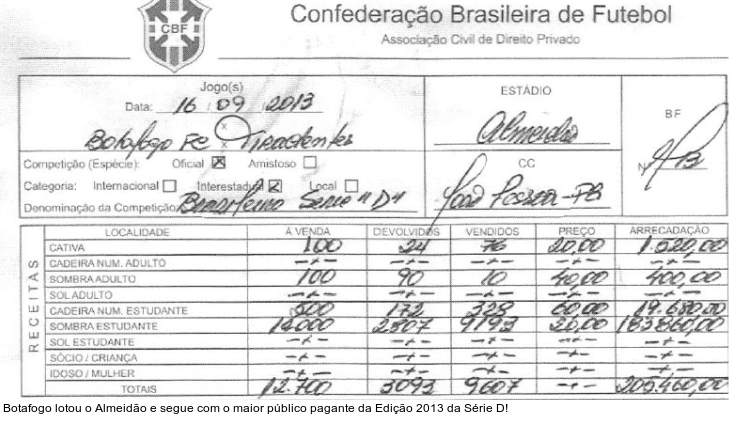 CBF
Confederação Brasileira de Futebol
Associação Civil de Direito Privado
Jogo(s)
Data: 16 / 09 / 2013
Botafogo FC x Tiradentes
Competição (Espécie): Oficial ☒ Amistoso ☐
Categoria: Internacional ☐ Interestadual ☒ Local ☐
Denominação da Competição Brasileiro Serie "D"
ESTÁDIO
Almeidão
CC
João Pessoa - PB
BF
Nº
RECEITAS
LOCALIDADE À VENDA DEVOLVIDOS VENDIDOS PREÇO ARRECADAÇÃO
CATIVA 100 24 76 20,00 1.520,00
CADEIRA NUM. ADULTO -/- -/- -/- -/- -/-
SOMBRA ADULTO 100 90 10 40,00 400,00
SOL ADULTO -/- -/- -/- -/- -/-
CADEIRA NUM. ESTUDANTE 500 172 328 60,00 19.680,00
SOMBRA ESTUDANTE 2807 9193 20,00 183.860,00
SOL ESTUDANTE -/- -/- -/- -/- -/-
SÓCIO / CRIANÇA -/- -/- -/- -/- -/-
IDOSO / MULHER -/- -/- -/- -/- -/-
TOTAIS 12.700 3093 9607 -/- 205.460,00
Botafogo lotou o Almeidão e segue com o maior público pagante da Edição 2013 da Série D!